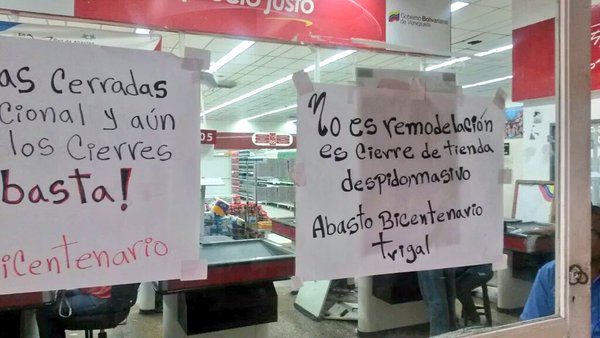 justo
Gobierno Bolivariano
de Venezuela
as Cerradas
cional y aún
los Cierres
basta!
icentenario
No es remodelación
es Cierre de tienda
despido masivo
Abasto Bicentenario
trigal